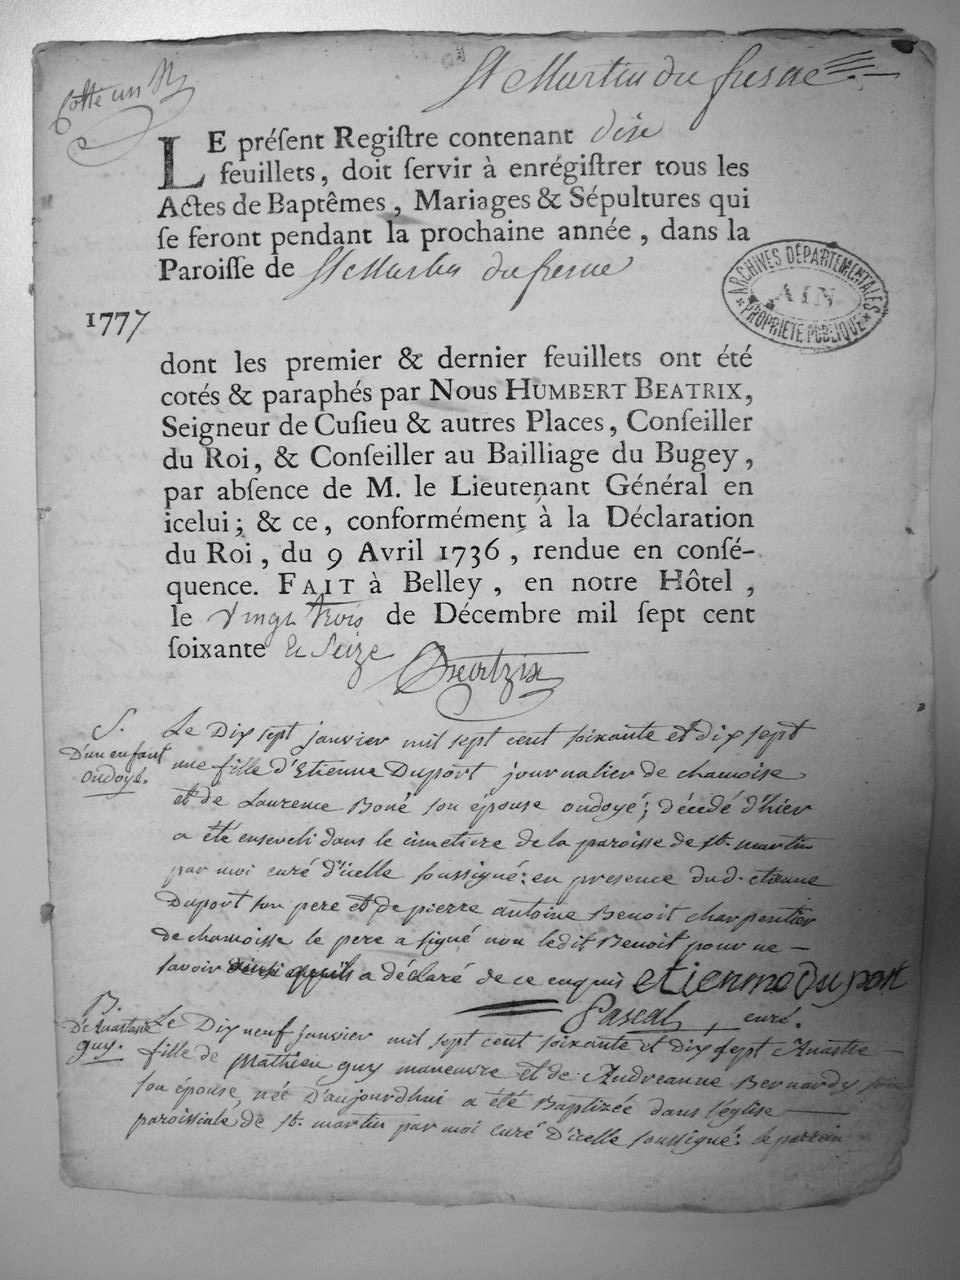 Cotte un
St Martin du fresne
LE préſent Regiſtre contenant dix
feuillets, doit ſervir à enrégiſtrer tous les
Actes de Baptêmes, Mariages & Sépultures qui
ſe feront pendant la prochaine année, dans la
Paroiſſe de St Martin du fresne
ARCHIVES DÉPARTEMENTALES
AIN
PROPRIÉTÉ PUBLIQUE
1777
dont les premier & dernier feuillets ont été
cotés & paraphés par Nous HUMBERT BEATRIX,
Seigneur de Cuſieu & autres Places, Conſeiller
du Roi, & Conſeiller au Bailliage du Bugey,
par abſence de M. le Lieutenant Général en
icelui; & ce, conformément à la Déclaration
du Roi, du 9 Avril 1736, rendue en conſé-
quence. FAIT à Belley, en notre Hôtel,
le vingt trois de Décembre mil ſept cent
ſoixante & Seize Béatrix
S.
D'un enfant
ondoyé.
Le Dix sept janvier mil sept cent soixante et dix sept
une fille d'Etienne Duport journalier de chamoise
et de Laurence Boné son épouse ondoyé; décédé d'hier
a été enseveli dans le cimetiere de la paroisse de st. martin
par moi curé d'icelle soussigné: en presence dud. etienne
Duport son pere et de pierre antoine Benoit charpentier
de chamoisse le pere a signé non ledit Benoit pour ne –
savoir a déclaré de ce enquis etienne duport
Pascal, curé.
B.
D'Anastasie
guy.
Le Dix neuf janvier mil sept cent soixante et dix sept –
fille de Mathieu guy maneuvre et de Andréanne Bernardy son
épouse, née D'aujourdhui a été Baptizée dans l'église
paroissiale de st. martin par moi curé D'icelle soussigné: le parrain